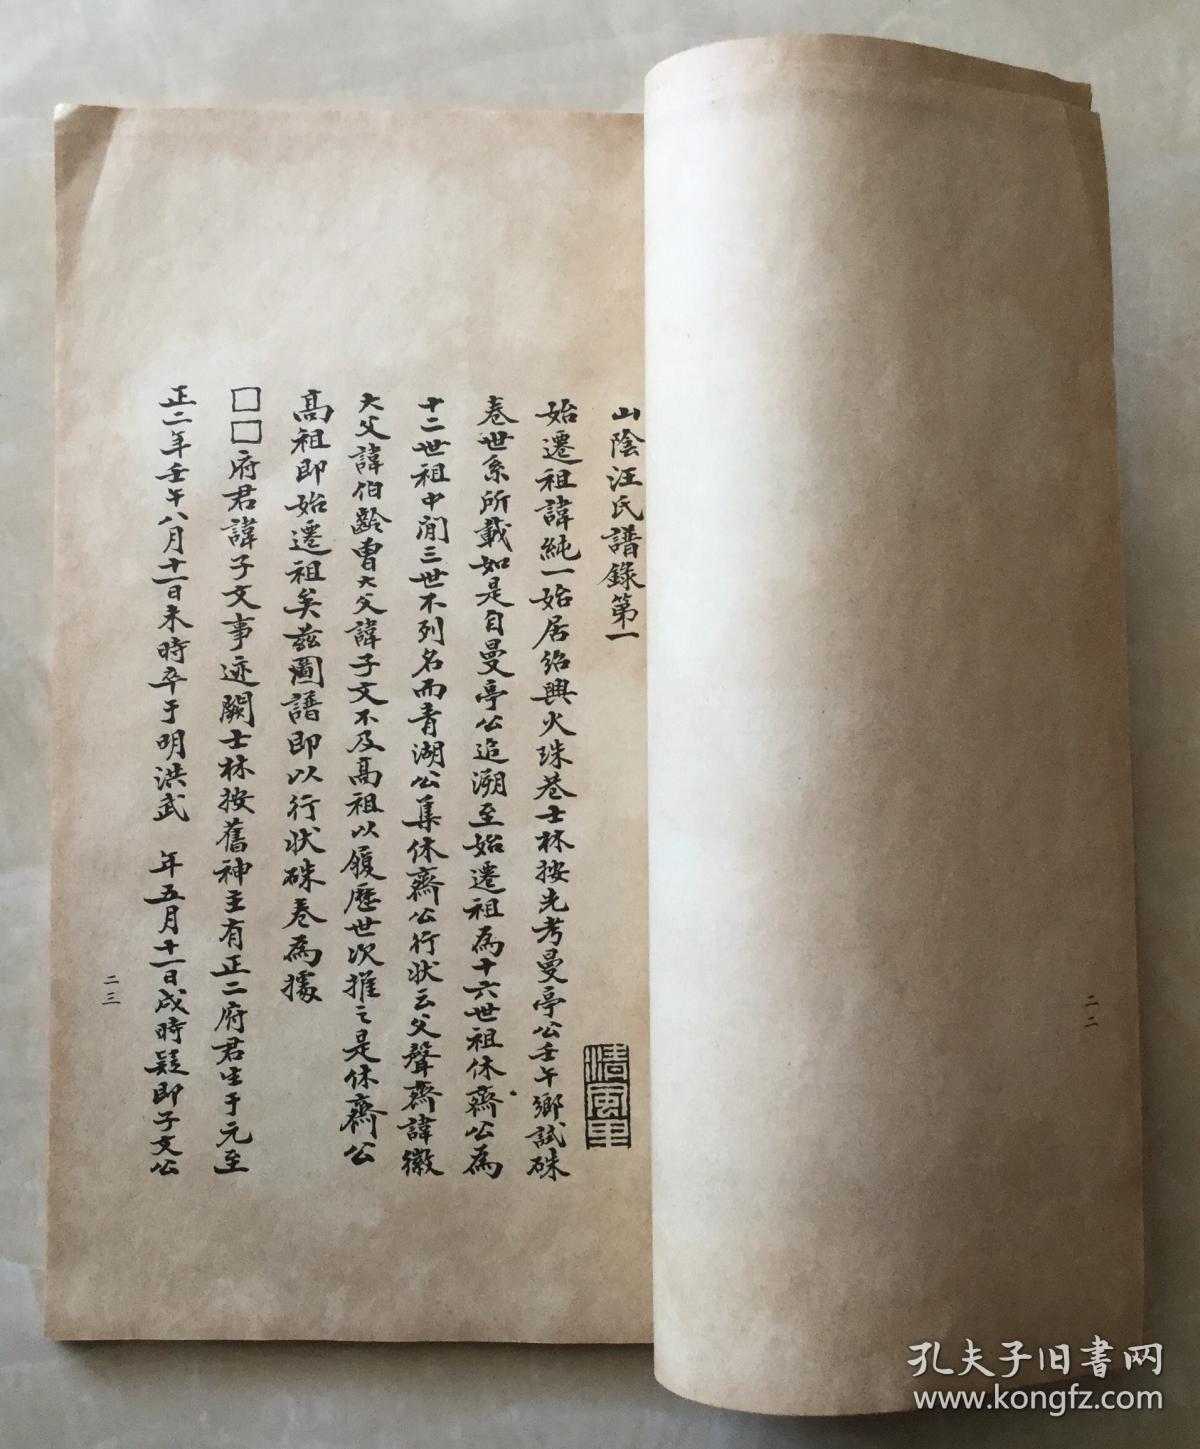 山陰汪氏譜錄第一
始遷祖諱純一始居紹興火珠巷士林按先考曼亭公壬午鄉試硃
卷世系所載如是自曼亭公追溯至始遷祖為十六世祖休齋公為
十二世祖中間三世不列名而青湖公集休齋公行狀云父聲齋諱徽
大父諱伯齡曾大父諱子文不及高祖以履歷世次推之是休齋公
高祖即始遷祖矣茲圖譜即以行狀硃卷為據
□□府君諱子文事迹闕士林按舊神主有正二府君生于元至
正二年壬午八月十一日未時卒于明洪武　年五月十一日戌時疑即子文公
清風里
二三
二二
孔夫子旧書网
www.kongfz.com